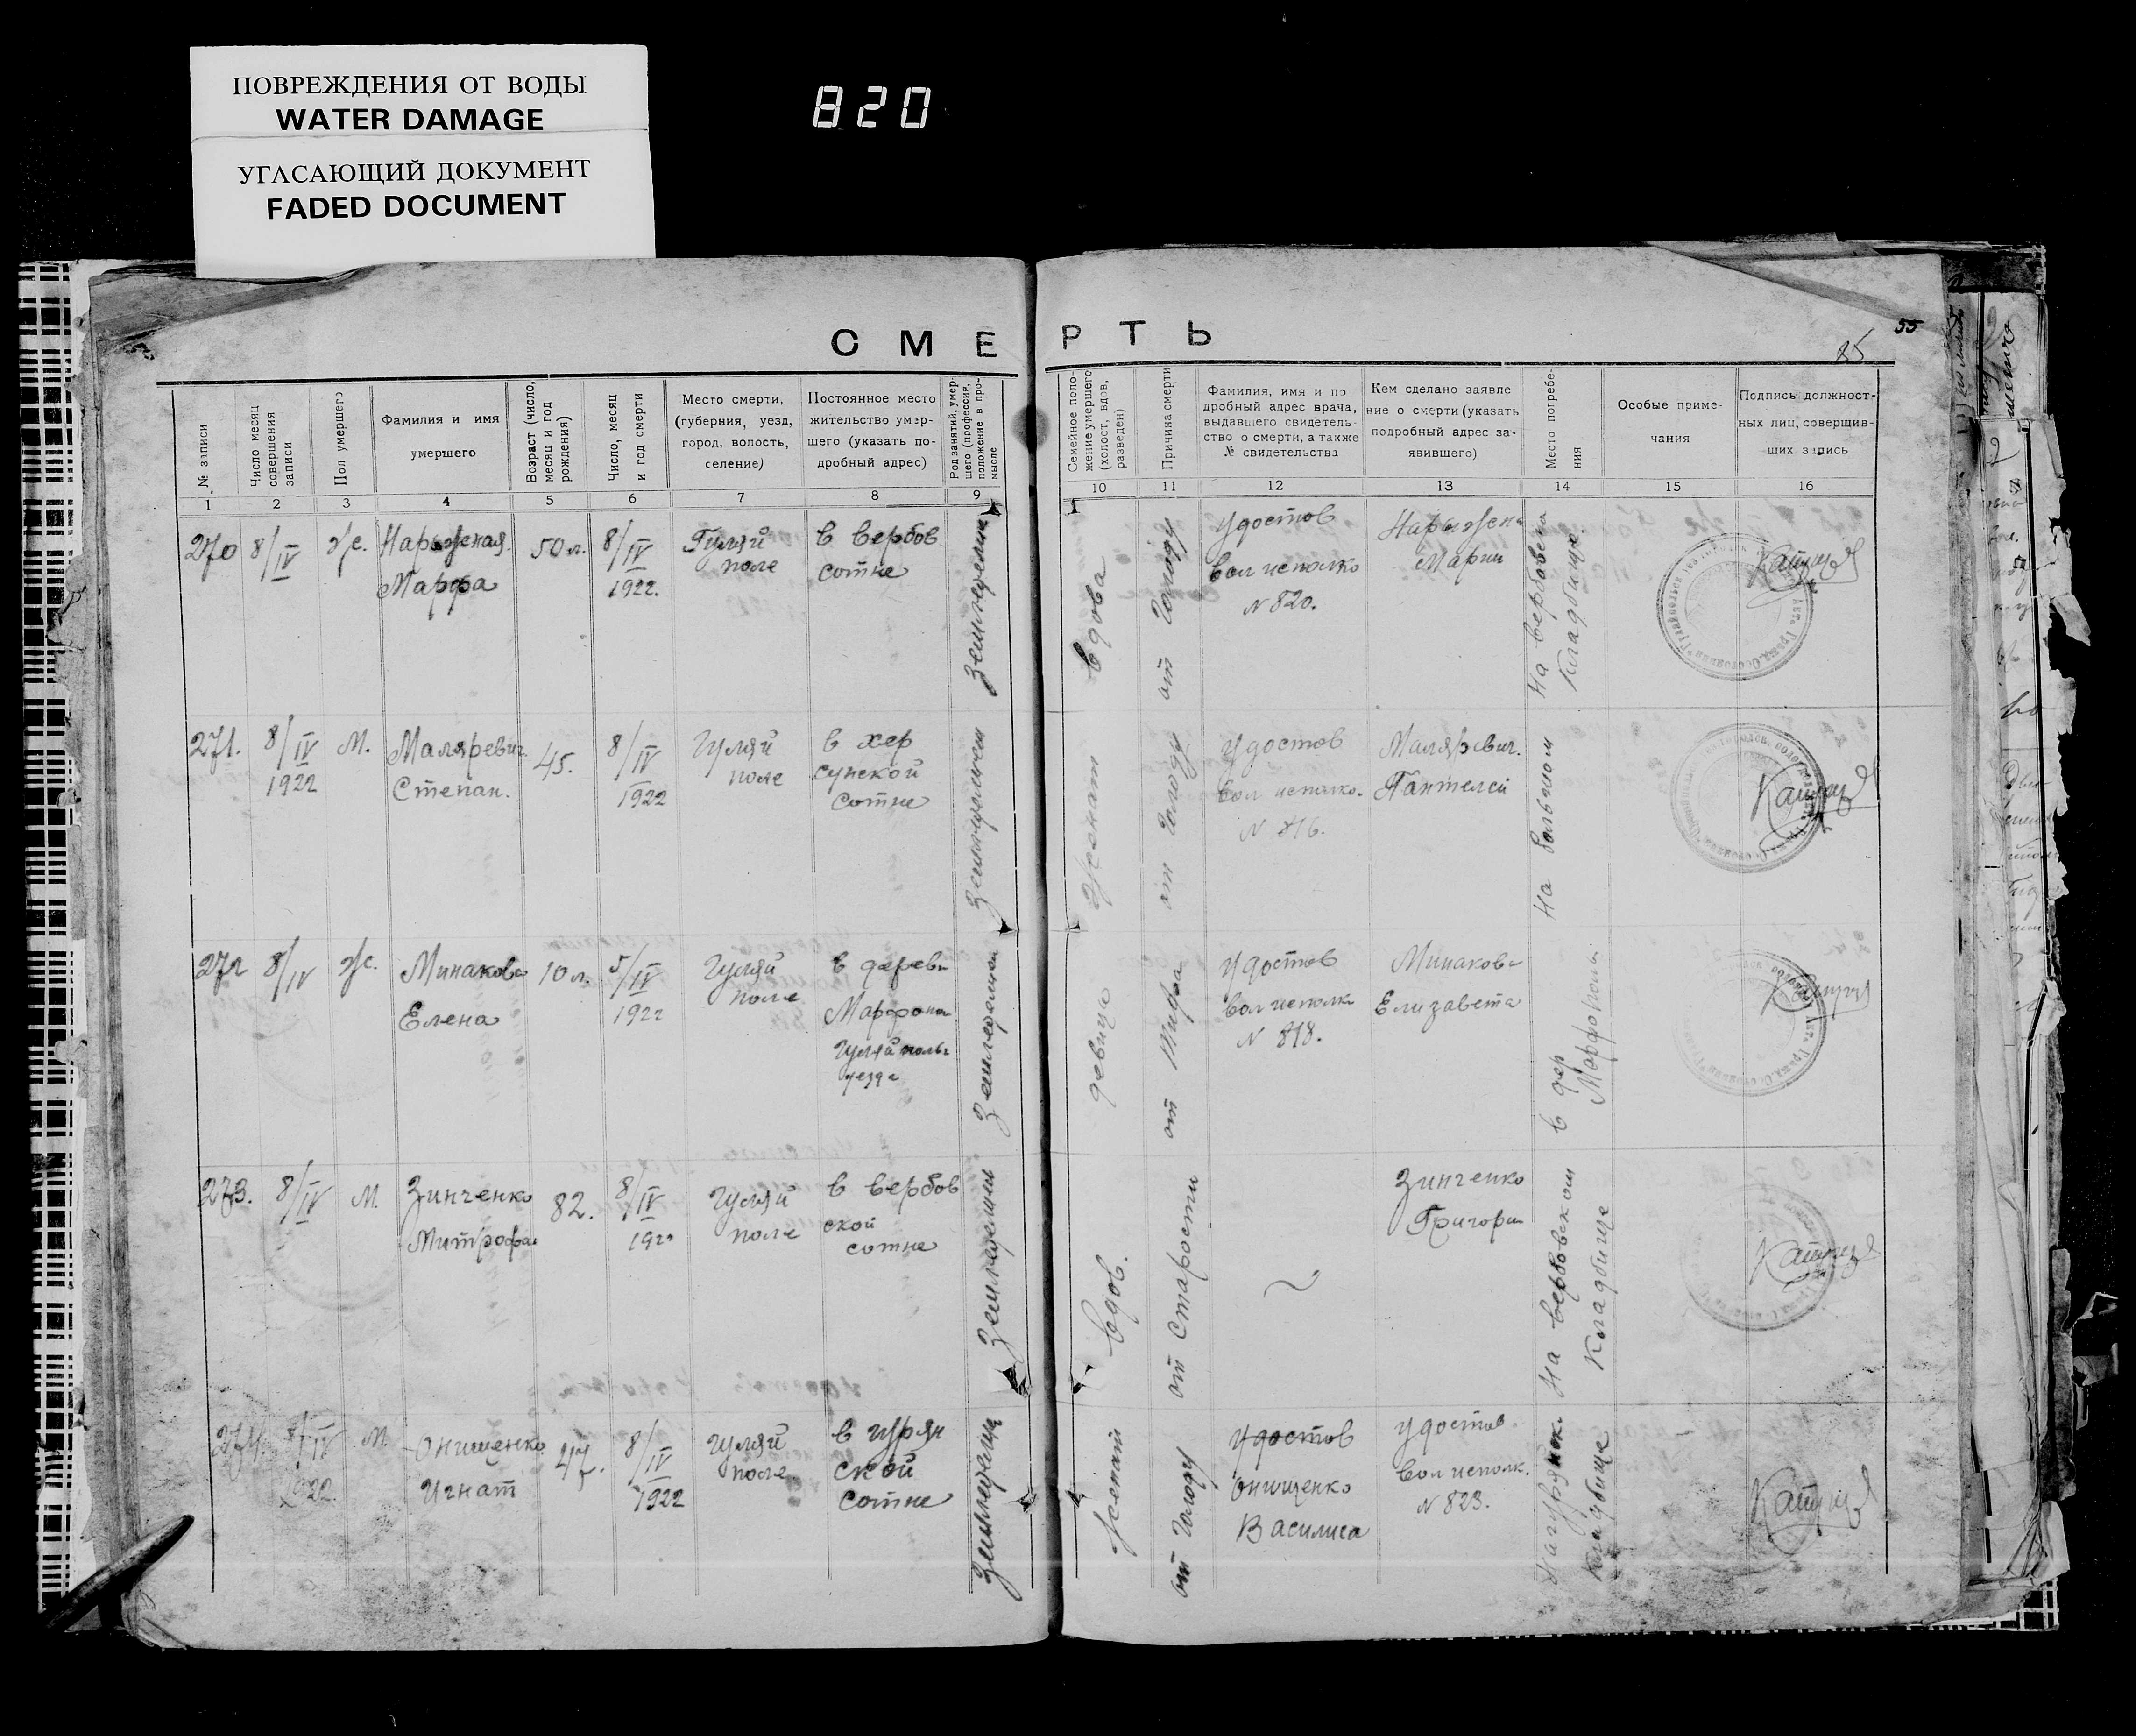 ПОВРЕЖДЕНИЯ ОТ ВОДЫ
WATER DAMAGE
УГАСАЮЩИЙ ДОКУМЕНТ
FADED DOCUMENT
820
СМЕРТЬ
55
№ записи
Число месяц
совершения
записи
Пол умершего
Фамилия и имя
умершего
Возраст (число,
месяц и год
рождения)
Число, месяц
и год смерти
Место смерти,
(губерния, уезд,
город, волость,
селение)
Постоянное место
жительство умер-
шего (указать по-
дробный адрес)
Род занятий, умер-
шего (профессия,
положение в про-
мысле
Семейное поло-
жение умершего
(холост, вдов,
разведен)
Причина смерти
Фамилия, имя и по
дробный адрес врача,
выдавшего свидетель-
ство о смерти, а также
№ свидетельства
Кем сделано заявле
ние о смерти (указать
подробный адрес за-
явившего)
Место погребе-
ния
Особые приме-
чания
Подпись должност-
ных лиц, соверщив-
ших запись
1 2 3 4 5 6 7 8 9 10 11 12 13 14 15 16
270
8/IV
ж.
Нарыжная
Марфа
50 л.
8/IV
1922.
Гуляй
поле
в вербов
сотне
Земледелие
вдова
от голоду
Удостов
вол исполко
N 820.
Нарыжна
Марии
На вербовска
кладбище.
271.
8/IV
1922
М.
Маляревич
Степан.
45.
8/IV
1922
Гуляй
поле
в хер
сунской
сотне
женат
от голоду
Удостов
вол исполко.
N 816.
Маляревич.
Пантелей
На больном
272
8/IV
ж.
Минакова
Елена
10 л.
5/IV
1922
Гуляй
поле
в дерев
Марфопол
Гуляйполь
уезда
девица
от Тифа
Удостов
вол исполк
N 818.
Минакова
Елизавета
в дер
Марфополь
273.
8/IV
М.
Зинченко
Митрофан
82.
8/IV
192
Гуляй
поле
в вербов
ской
сотне
Земледелец
вдов.
от Старости
Зинченко
Григори
На вербовском
кладбище
274.
8/IV
1922.
М.
Онищенко
Игнат
47.
8/IV
1922
Гуляй
поле
в гурян
ской
сотне
женат
от голоду
Удостов
Онищенко
Василиса
Удостов.
вол исполк.
N 823.
кладбище